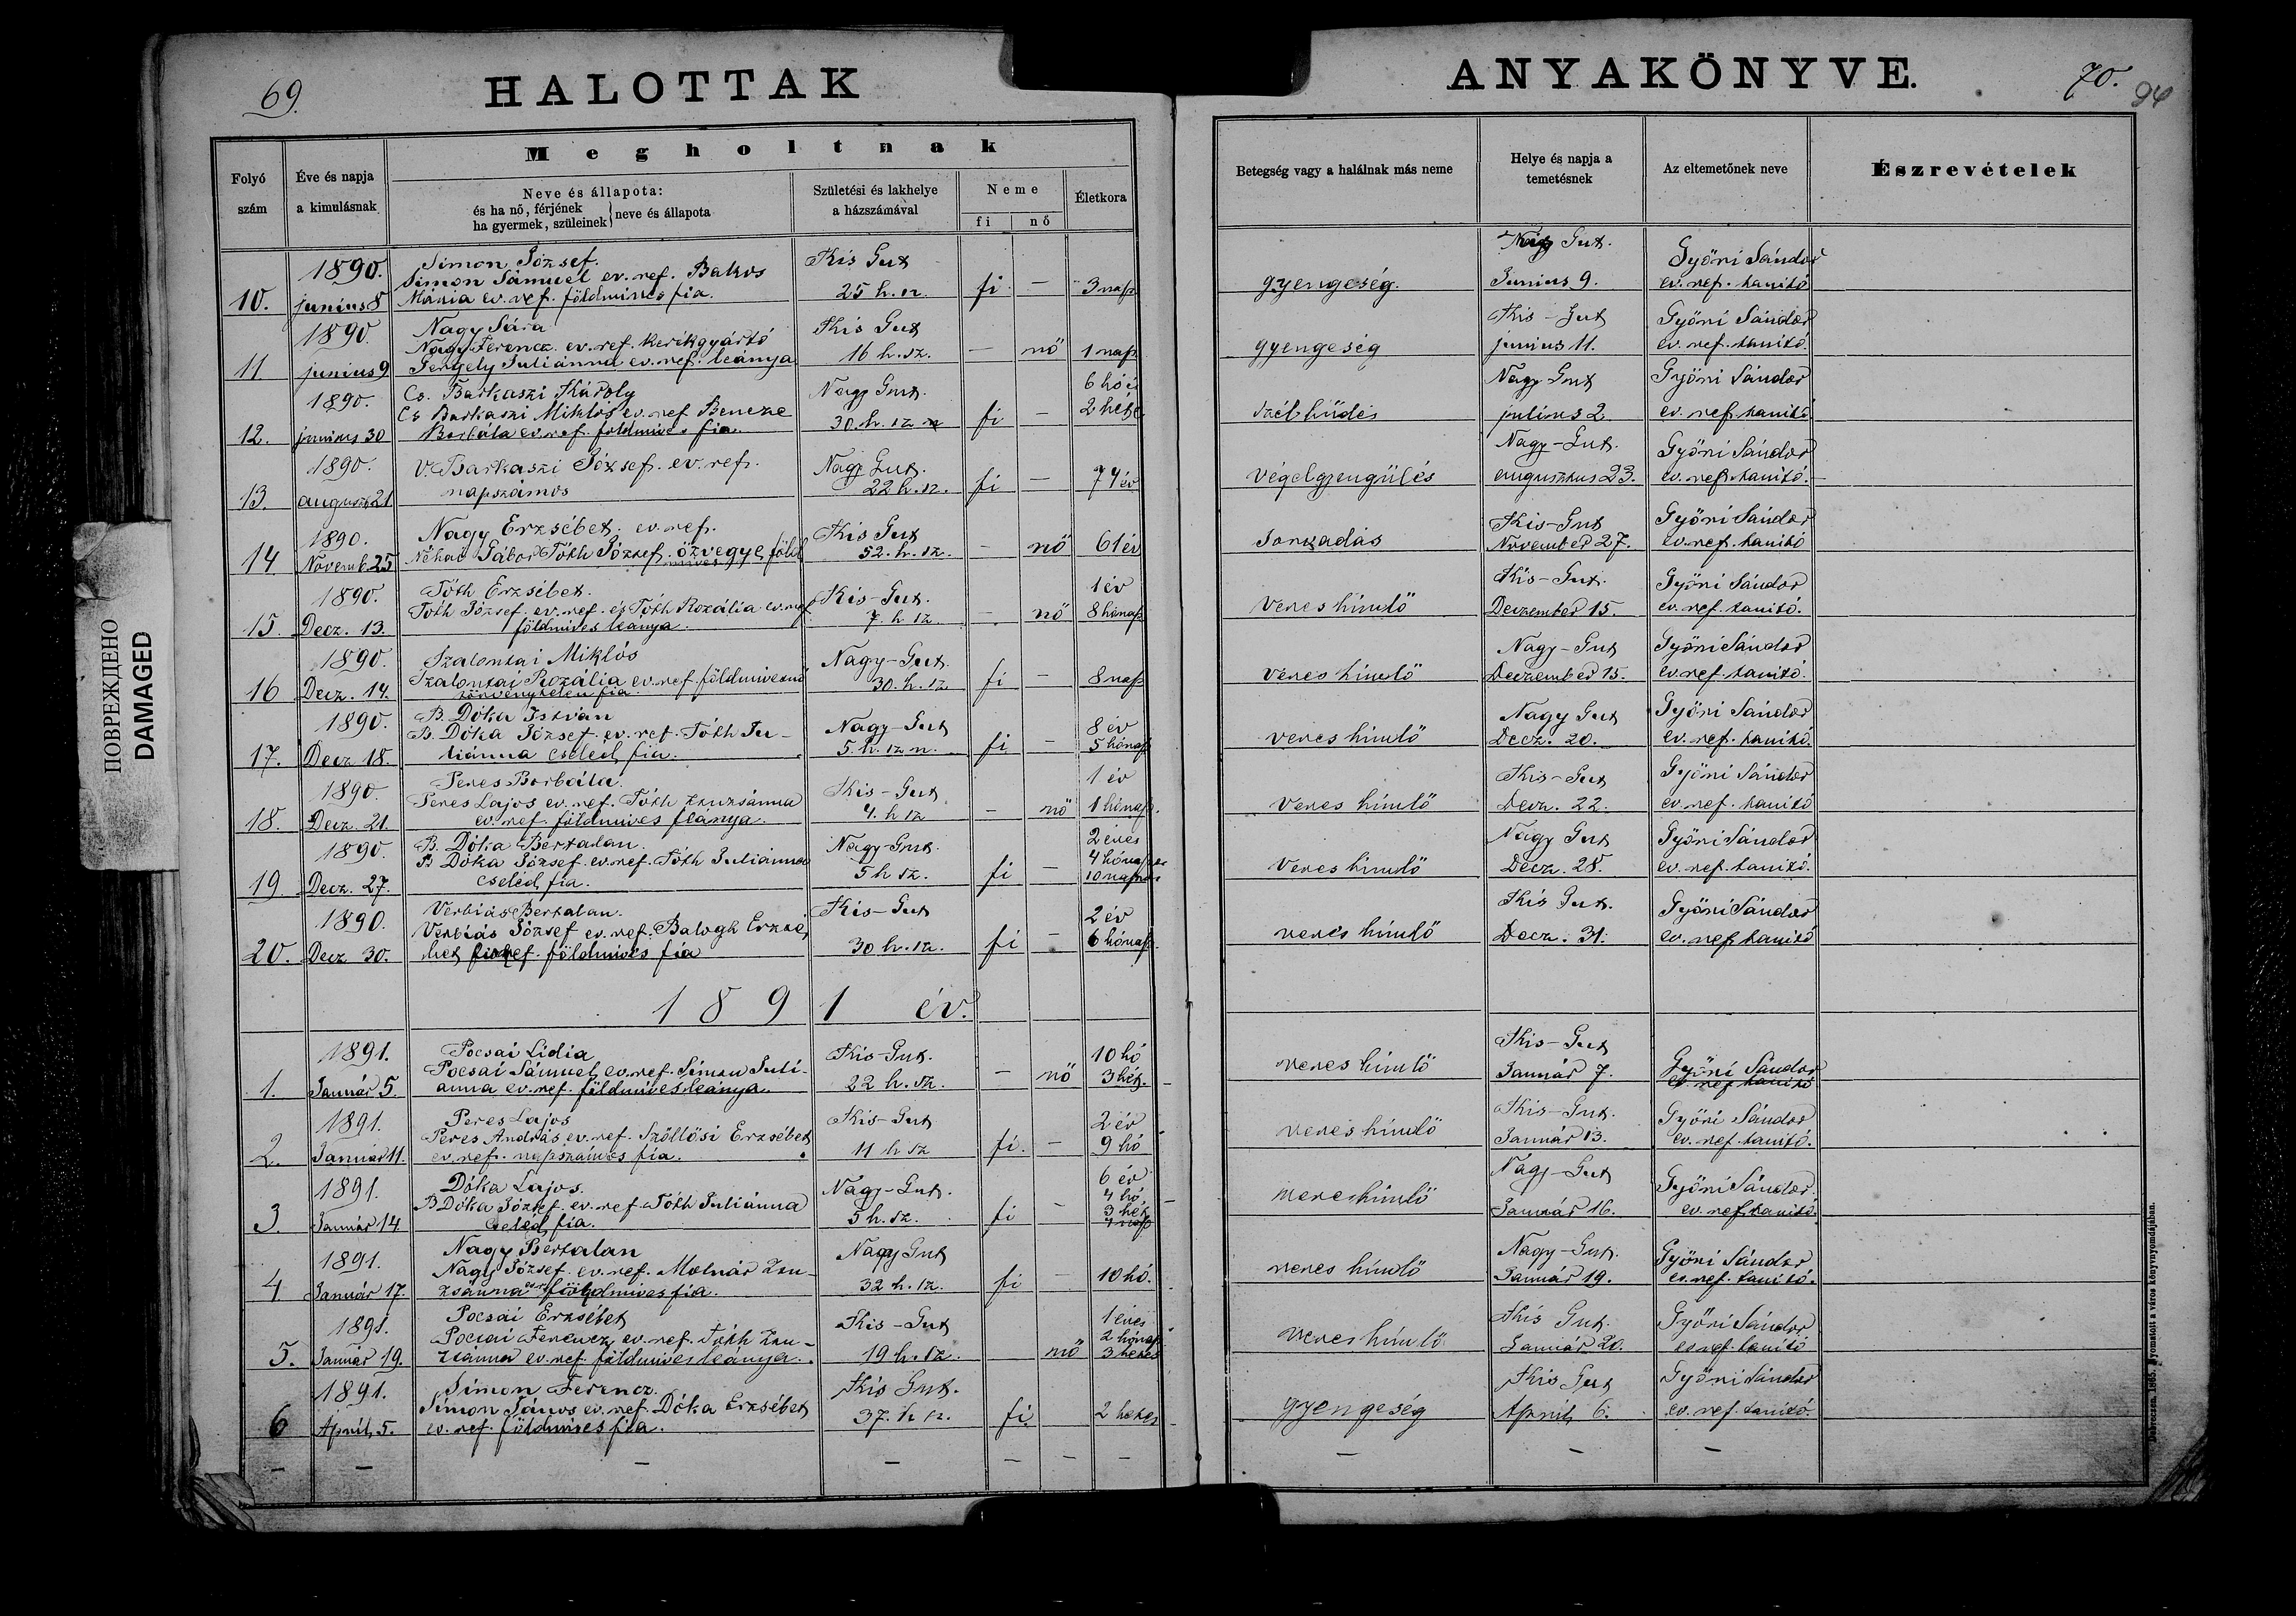 69.
HALOTTAK
Folyó szám
Éve és napja a kimulásnak
Megholtnak
Neve és állapota:
és ha nő, férjének
ha gyermek, szüleinek
neve és állapota
Születési és lakhelye a házszámával
Neme
fi
nő
Életkora
ANYAKÖNYVE.
70.
94
Betegség vagy a halálnak más neme
Helye és napja a temetésnek
Az eltemetőnek neve
Észrevételek
10. 1890. junius 8
Simon József.
Simon Sámuel ev. ref. Bakos
Mária ev. ref. földmives fia.
Kis Gut
25 h. sz. fi – 3 nap
gyengeség.
Nagy Gut.
Junius 9.
Győri Sándor
ev. ref. tanitó
11. 1890. junius 9
Nagy Sára
Nagy Ferencz. ev. ref. kerékgyártó
Gergely Juliánna ev. ref. leánya
Kis Gut
16 h. sz. – nő 1 nap
gyengeség
Kis-Gut
junius 11.
Győri Sándor
ev. ref. tanitó.
12. 1890. junius 30
Cs. Barkaszi Károly
Cs Barkaszi Miklós ev. ref Bencze
Borbála ev. ref. földmives fia.
Nagy Gut.
30. h. sz fi –
6 hó
2 hét
szélhüdés
Nagy Gut
julius 2.
Győri Sándor
ev. ref. tanitó
13. 1890. auguszt 21
V. Barkaszi József. ev. ref.
napszámos
Nagy Gut.
22 h. sz. fi – 74 év
végelgyengülés
Nagy-Gut.
augusztus 23.
Győri Sándor
ev. ref. tanitó.
14 1890. Novemb. 25
Nagy Erzsébet. ev. ref.
Néhai Gábor Tóth József. özvegye föld
mives
Kis Gut
52. h. sz. – nő 61 év
Sorvadás
Kis-Gut
November 27.
Győri Sándor
ev. ref. tanitó
15. 1890. Decz. 13.
Tóth Erzsébet.
Tóth József. ev. ref. és Tóth Rozália ev. ref.
földmives leánya.
Kis-Gut.
7. h sz – nő
1 év
8 hónap
Veres himlő
Kis-Gut.
Deczember 15.
Győri Sándor
ev. ref. tanitó.
16 1890. Decz. 14.
Szalontai Miklós
Szalontai Rozália ev. ref. földmivesnő
törvénytelen fia.
Nagy-Gut.
30. h. sz fi – 8 nap
veres himlő
Nagy-Gut
Deczember 15.
Győri Sándor
ev. ref. tanitó.
17. 1890. Decz 18.
B. Dóka István
B. Dóka József. ev. ref. Tóth Ju-
liánna cseléd, fia.
Nagy-Gut
5. h. sz fi –
8 év
5 hónap
veres himlő
Nagy Gut
Decz. 20.
Győri Sándor
ev. ref. tanitó.
18. 1890. Decz. 21.
Peres Borbála.
Peres Lajos ev. ref. Tóth Zsuzsánna
ev. ref. földmives leánya.
Kis-Gut
4. h sz – nő
1 év
1 hónap.
Veres himlő
Kis-Gut
Decz. 22.
Győri Sándor
ev. ref. tanitó
19 1890. Decz. 27.
B. Dóka Bertalan.
B Dóka József. ev. ref. Tóth Juliánna
cseléd, fia.
Nagy-Gut.
5 h sz. fi –
2 éves
4 hónapos
10 napos
Veres himlő
Nagy Gut
Decz. 28.
Győri Sándor
ev. ref. tanitó.
20. 1890. Decz 30.
Verbiás Bertalan.
Verbiás József ev. ref. Balogh Erzsé
bet ref. földmives fia
Kis-Gut
30 h. sz. fi –
2 év
6 hónap.
veres himlő
Kis Gut.
Decz. 31.
Győri Sándor
ev. ref tanitó
1891 év.
1. 1891. Január 5.
Pocsai Lidia
Pocsai Sámuel, ev. ref. Simon Juli-
ánna ev. ref. földmives leánya.
Kis-Gut.
22 h. sz. – nő
10 hó
3 hét.
veres himlő
Kis-Gut
Január 7.
Győri Sándor
ev. ref tanitó
2. 1891. Január 11.
Peres Lajos
Peres András ev. ref. Szőllősi Erzsébet
ev. ref. napszámos fia.
Kis-Gut
11 h sz fi. –
2 év
9 hó
veres himlő
Kis-Gut.
Január 13.
Győri Sándor
ev. ref. tanitó.
3. 1891. Január 14
Dóka Lajos.
B Dóka József. ev. ref. Tóth Juliánna
cseléd, fia.
Nagy-Gut.
5 h. sz. fi –
6 év
4 hó
3 hét
4 nap
vereshimlő
Nagy-Gut
Január 16.
Győri Sándor.
ev. ref. tanitó.
4. 1891. Január 17.
Nagy Bertalan
Nagy József. ev. ref. Molnár Zsu-
zsánna földmives fia.
Nagy Gut
32 h. sz. fi – 10 hó.
veres himlő
Nagy-Gut.
Január 19.
Győri Sándor
ev. ref. tanitó.
5. 1891. Január 19.
Pocsai Erzsébet
Pocsai Ferencz, ev. ref. Tóth Zsu-
zsánna ev. ref. földmives leánya.
Kis-Gut
19 h. sz. nő
1 éves
2 hónap
3 hetes
Veres himlő
Kis Gut.
Január 20.
Győri Sándor
ev ref. tanitó
6 1891. April, 5.
Simon Ferencz.
Simon János ev. ref. Dóka Erzsébet
ev. ref. földmives fia.
Kis Gut.
37. h sz. fi. 2 hetes
gyengeség
Kis Gut
April, 6.
Győri Sándor
ev. ref. tanitó.
Debreczen, 1865. Nyomatott a város könyvnyomdájában.
ПОВРЕЖДЕНО
DAMAGED